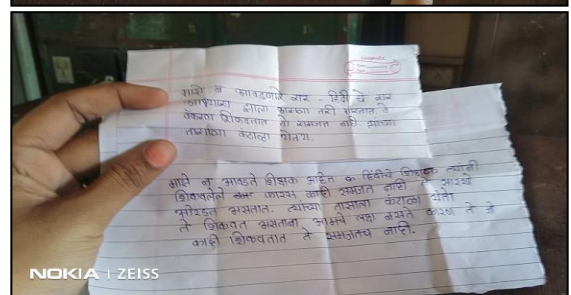 माझे न आवडणारे सर - हिंदी चे सर
शाळा तरी
शिकवतात ते समजत नाही त्यांच्या
तासाला कंटाळा येतय.
माझे न आवडते शिक्षक आहेत क हिंदीचे शिक्षक त्यांनी
शिकवलेले फारस काही समजत नाही ते सारख
ओरडत असतात. त्यांच्या तासाला कंटाळा येतो
ते शिकवत असताना आमचे लक्ष नसते कारण ते जे
काही शिकवतात ते समजतच नाही.
NOKIA | ZEISS